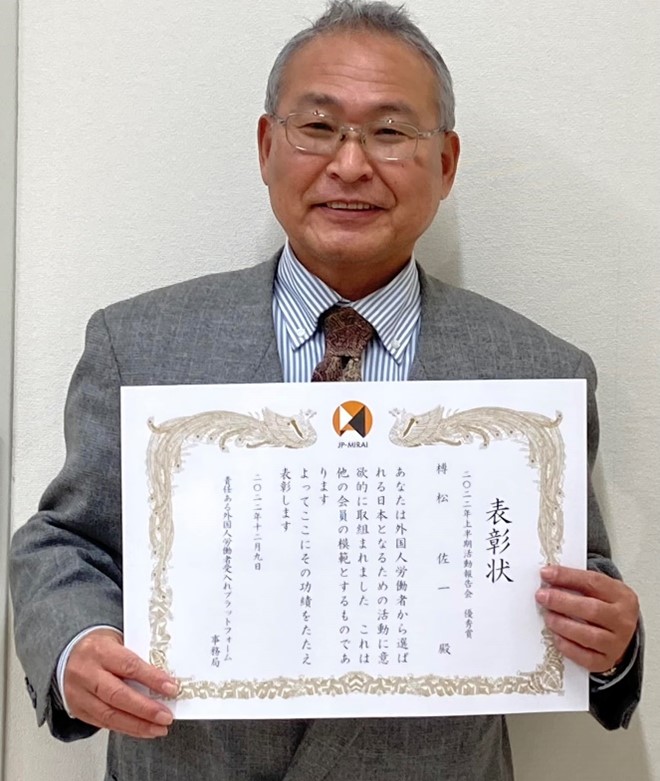 JP-MIRAI
表彰状
二〇二二年上半期活動報告会 優秀賞
樽松 佐一 殿
あなたは外国人労働者から選ば
れる日本となるための活動に意
欲的に取組まれました これは
他の会員の模範とするものであ
ります
よってここにその功績をたたえ
表彰します
二〇二二年十二月九日
責任ある外国人労働者受入れプラットフォーム
事務局